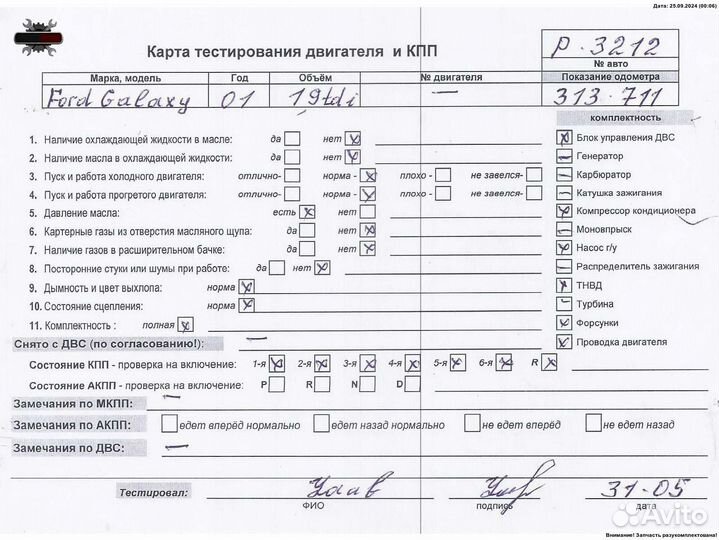 Дата: 25.09.2024 (00:06)
Карта тестирования двигателя и КПП
Р. 3212
№ авто
Марка, модель Год Объём № двигателя Показание одометра
Ford Galaxy 01 1,9tdi — 313.711
комплектность
1. Наличие охлаждающей жидкости в масле: да нет
2. Наличие масла в охлаждающей жидкости: да нет
3. Пуск и работа холодного двигателя: отлично- норма - плохо - не завелся-
4. Пуск и работа прогретого двигателя: отлично- норма - плохо - не завелся-
5. Давление масла: есть нет
6. Картерные газы из отверстия масляного щупа: да нет
7. Наличие газов в расширительном бачке: да нет
8. Посторонние стуки или шумы при работе: да нет
9. Дымность и цвет выхлопа: норма
10. Состояние сцепления: норма
11. Комплектность : полная
Блок управления ДВС
Генератор
Карбюратор
Катушка зажигания
Компрессор кондиционера
Моновпрыск
Насос г/у
Распределитель зажигания
ТНВД
Турбина
Форсунки
Проводка двигателя
Снято с ДВС (по согласованию!): —
Состояние КПП - проверка на включение: 1-я 2-я 3-я 4-я 5-я 6-я R
Состояние АКПП - проверка на включение: P R N D
Замечания по МКПП: —
Замечания по АКПП: едет вперёд нормально едет назад нормально не едет вперёд не едет назад
Замечания по ДВС: —
Тестировал: 31-05
ФИО подпись дата
Avito
Внимание! Запчасть разукомплектована!